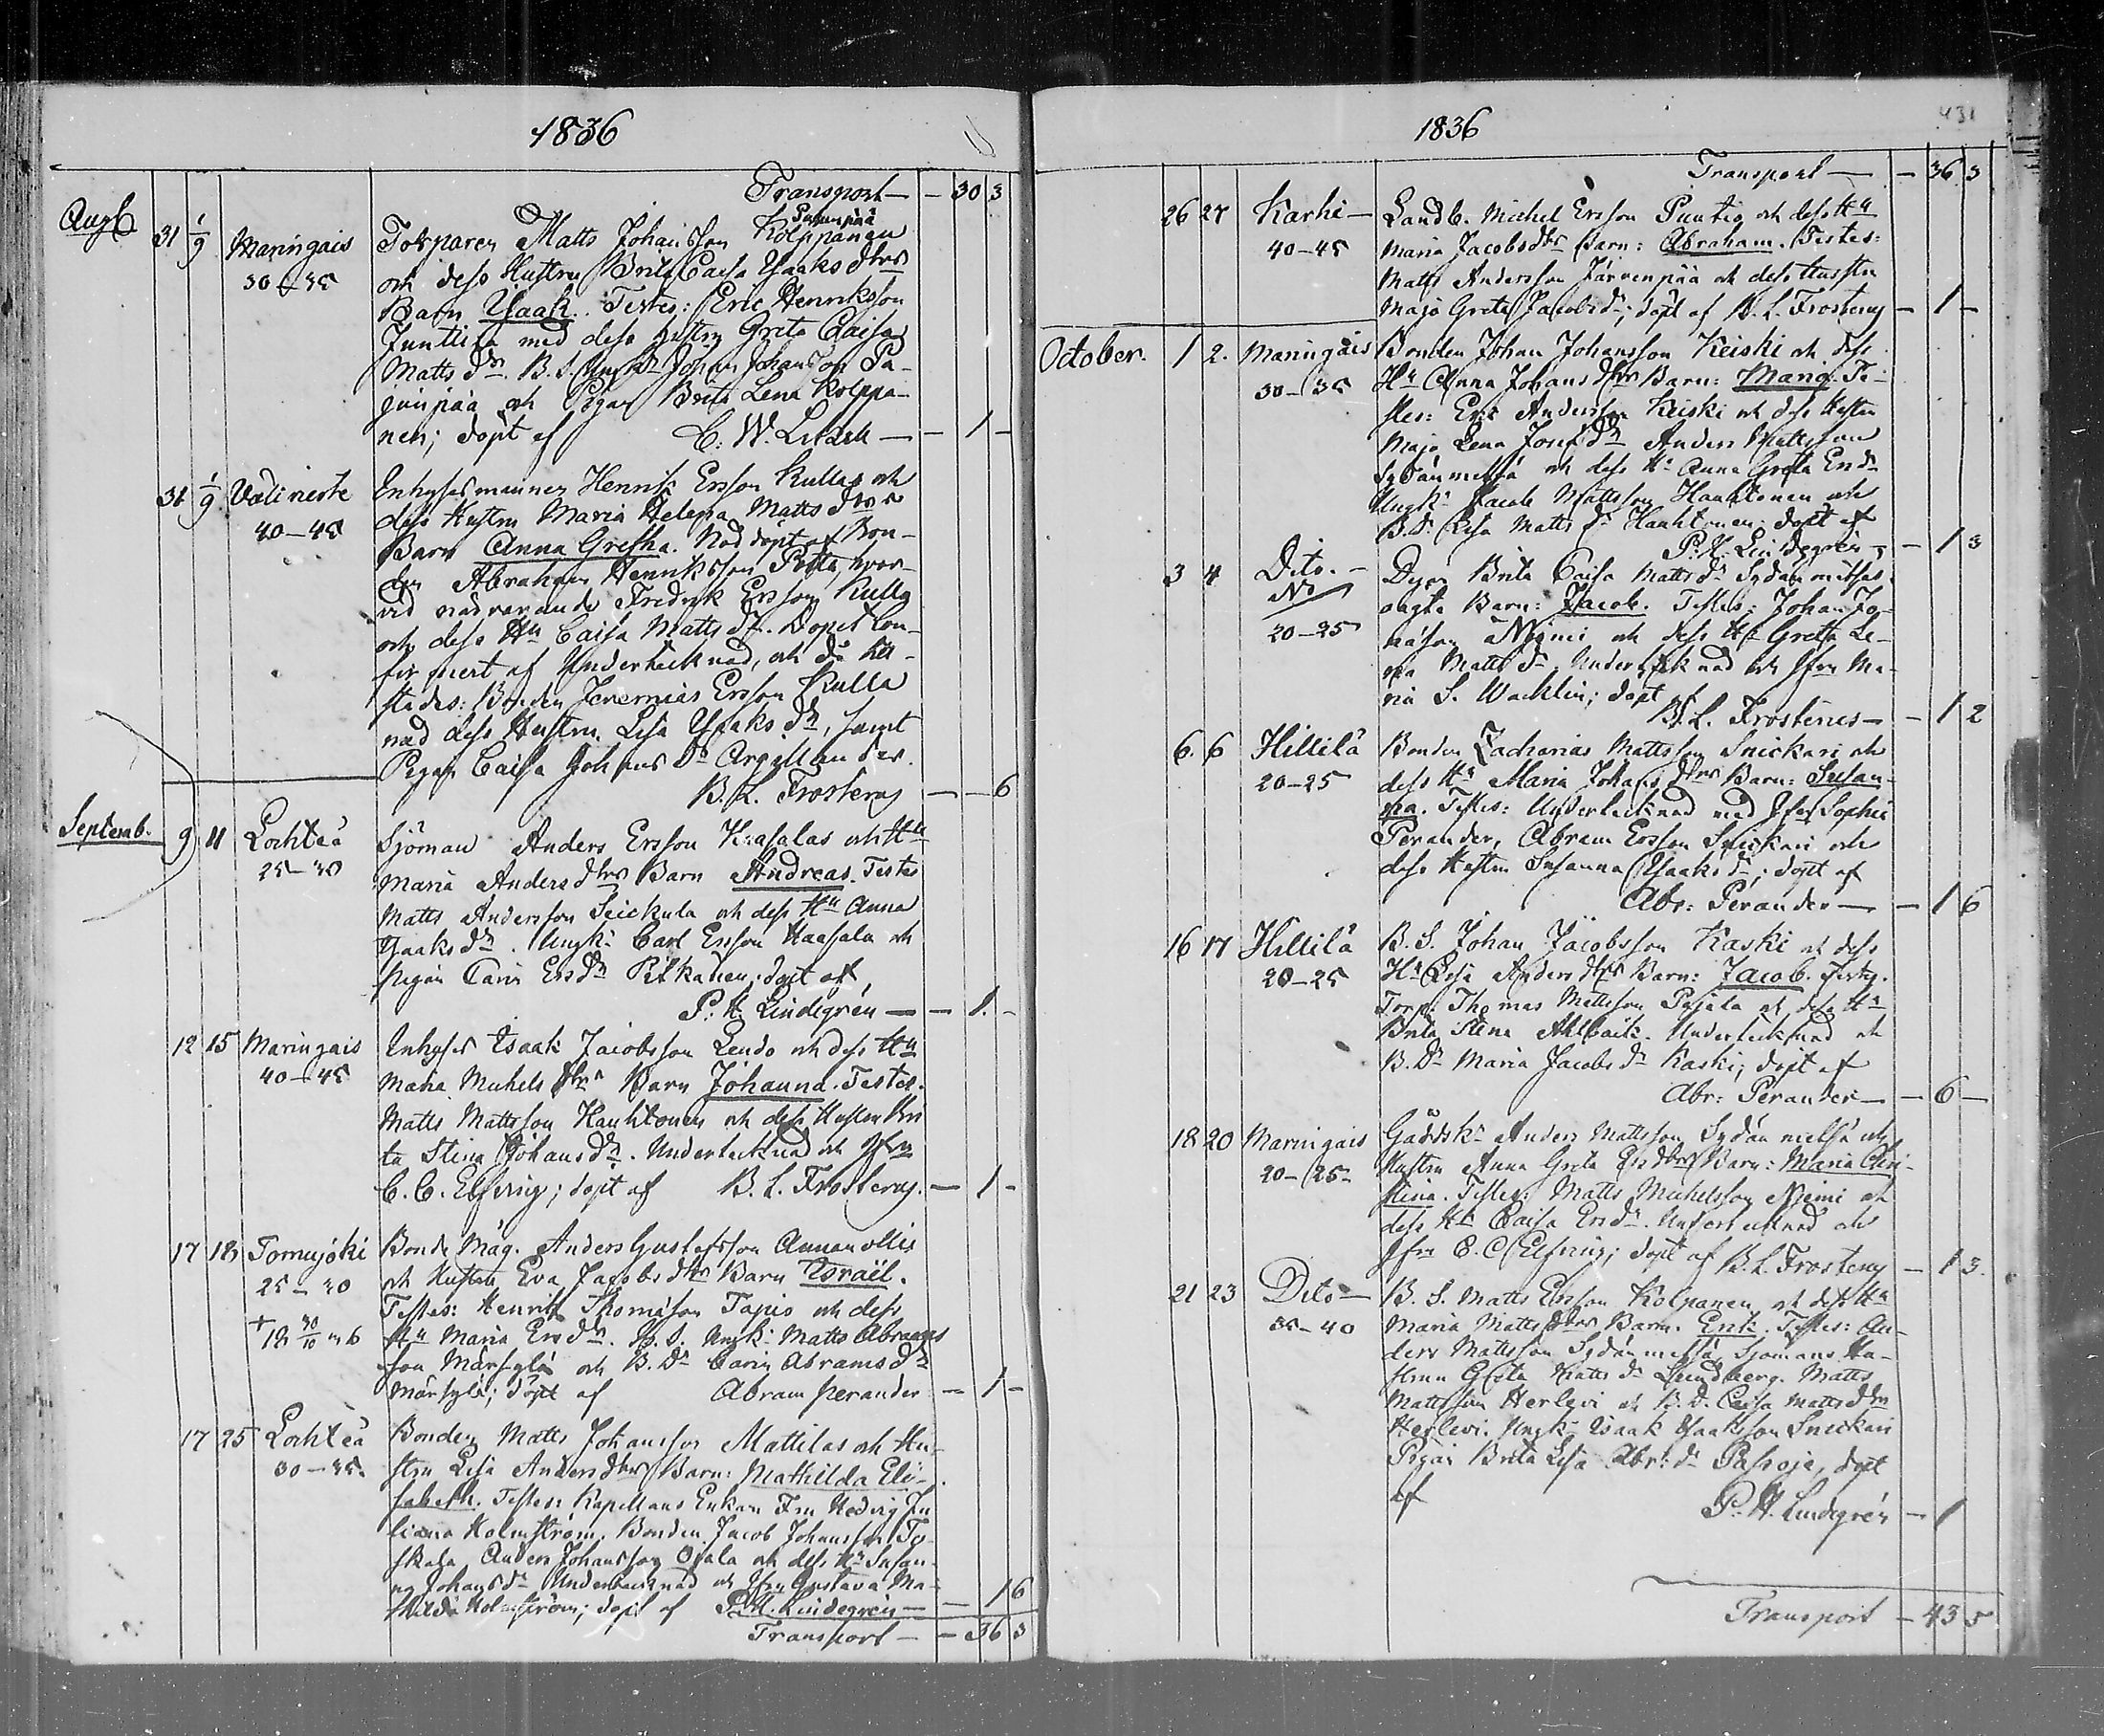 1836
Transport — — 30 3
Aug. 31 1/9 Maringais Torparen Matts Johansson Kolppanen
Pajunpää
30–35 och dess Hustru Brita Caisa Isaaks dtrs
Barn Isaak. Testes: Eric Henriksson
Junttila med dess Hustru Greta Caisa
Matts dr. B. S. Ungk. Johan Johansson Pa-
junpää och Pigan Brita Lena Kolppa-
nen; döpt af C. W. — — 1 —
31 1/9 Välivierte Inhyses mannen Henrik Ersson Kullas och
40–45 dess Hustru Maria Helena Matts dtrs
Barn Anna Gretha. Nöddöpt af Bon-
den Abraham Henriksson Potta, hvar-
vid närvarande Fredrik Ersson Kulla
och dess Hu Caisa Matts dr. Dopet Con-
firmert af Undertecknad, och då till-
städes: Bonden Jeremias Ersson Kulla
med dess Hustru Lisa Isaks dr, samt
Pigan Caisa Johans Dr Argillander.
B. L. Frosterus — — 6
Septemb. 9 11 Lochteå Sjöman Anders Ersson Haasalas och Hu
25–30 Maria Anders dtrs Barn Andreas. Testes
Matts Andersson Seickula och dess Hu Anna
Isaaks dr. Ungk. Carl Ersson Haasala och
pigan Carin Ers dr Pitkänen; döpt af
P. H. Lindegrén — — 1. —
12 15 Maringais Inhyses Isaak Jacobsson Lendo och dess Hu
40–45 Maria Michels dtrs Barn Johanna. Testes.
Matts Mattsson Hanhtonen och dess Hustru Bri
ta Stina Johans dr. Undertecknad och Jfru
C. C. Elfving; döpt af B. L. Frosterus. — 1 —
17 18 Tomujoki Bonde Måg. Anders Gustafsson Annanollis
25–30 och Hustru Eva Jacobs dtrs Barn Israël.
Testes: Henrik Thomasson Tapio och dess
+ 18 30/10 36 Hu Maria Ers dr. B. S. Ungk. Matts Abrams
son Märsylä och B. Dr Carin Abrams dr
Märsylä; döpt af Abram Perander — 1 —
17 25 Lochteå Bonden Matts Johansson Mattilas och Hu-
30–35. stru Lisa Anders dtrs Barn: Mathilda Eli-
sabeth. Testes: Kapellans Enkan Fru Hedvig Ju
liana Holmström. Bonden Jacob Johansson To-
skala, Anders Johansson Ojala och dess Hu Susan-
na Johans dr Undertecknad och Jfru Gustava Ma-
thilda Holmström; döpt af P. H. Lindegrén — — 1 6
Transport — — 36 3
1836
431
Transport — — 36 3
26 27 Karhi — Landb. Michel Ersson Puntio och dess Hu
40–45 Maria Jacobs dtrs Barn: Abraham. Testes:
Matts Andersson Järvenpää och dess Hustru
Maja Greta Jacobs dr; döpt af B. L. Frosterus — 1 —
October. 1 2. Maringais Bonden Johan Johansson Keiski och dess
30–35 Hu Anna Johans dtrs Barn: Maria. Te-
stes: Eric Andersson Keiski och dess Hustru
Maja Lena Josef dr Anders Mattsson
Sydänmetsä och dess Hu Anna Greta Ers dr
Ungk. Jacob Mattsson Hanhtonen och
B. Dr. Lisa Matts dr Hanhtonen; döpt af
P. H. Lindegrén — — 1 3
3 4 Dito. — Pigan Brita Caisa Matts dr Sydänmetsas
oägta Barn: Jacob. Testes: Johan Jo-
20–25 hansson Niemi och dess Hu Greta Le-
na Matts dr. Undertecknad och Jfru Ma-
ria S. Wacklin; döpt af
B. L. Frosterus — — 1 2
6. 6 Hillilä Bonden Zacharias Mattsson Snickari och
20–25 dess Hu Maria Johans dtrs Barn: Susan-
na. Testes: Undertecknad med Jfru Sophie
Perander, Abram Ersson Snickari och
dess Hustru Susanna Isaaks dr; döpt af
Abr: Perander — — 1 6
16 17 Hillilä B. S. Johan Jacobsson Kaski och dess
20–25 Hu Lisa Anders dtrs Barn: Jacob. Testes.
Torp. Thomas Mattsson Pajala och dess Hu
Brita Stina Ahlbäck. Undertecknad och
B. Dr Maria Jacobs dr Kaski; döpt af
Abr: Perander — — 6 —
18 20 Maringais Gårdsk. Anders Mattsson Sydänmetsä och
20–25 Hustru Anna Greta Ers dtrs Barn: Maria Chri-
stina. Testes: Matts Michelsson Niemi och
dess Hu Caisa Ers dr. Undertecknad och
Jfru C. C. Elfving; döpt af B. L. Frosterus — 1 3.
21 23 Dito — B. S. Matts Ersson Kolpanen och dess Hu
35–40 Maria Matts dtrs Barn. Erik. Testes: An-
ders Mattsson Sydänmetsä, Sjömans Hu-
strun Greta Matts dr Lundberg. Matts
Mattsson Herlevi och B. D. Caisa Matts dtr
Herlevi. Ungk. Isaak Isaaksson Snickari
Pigan Brita Lisa Abr: dr Pasoja, döpt
af P. H. Lindegrén — 1
Transport — 43 5